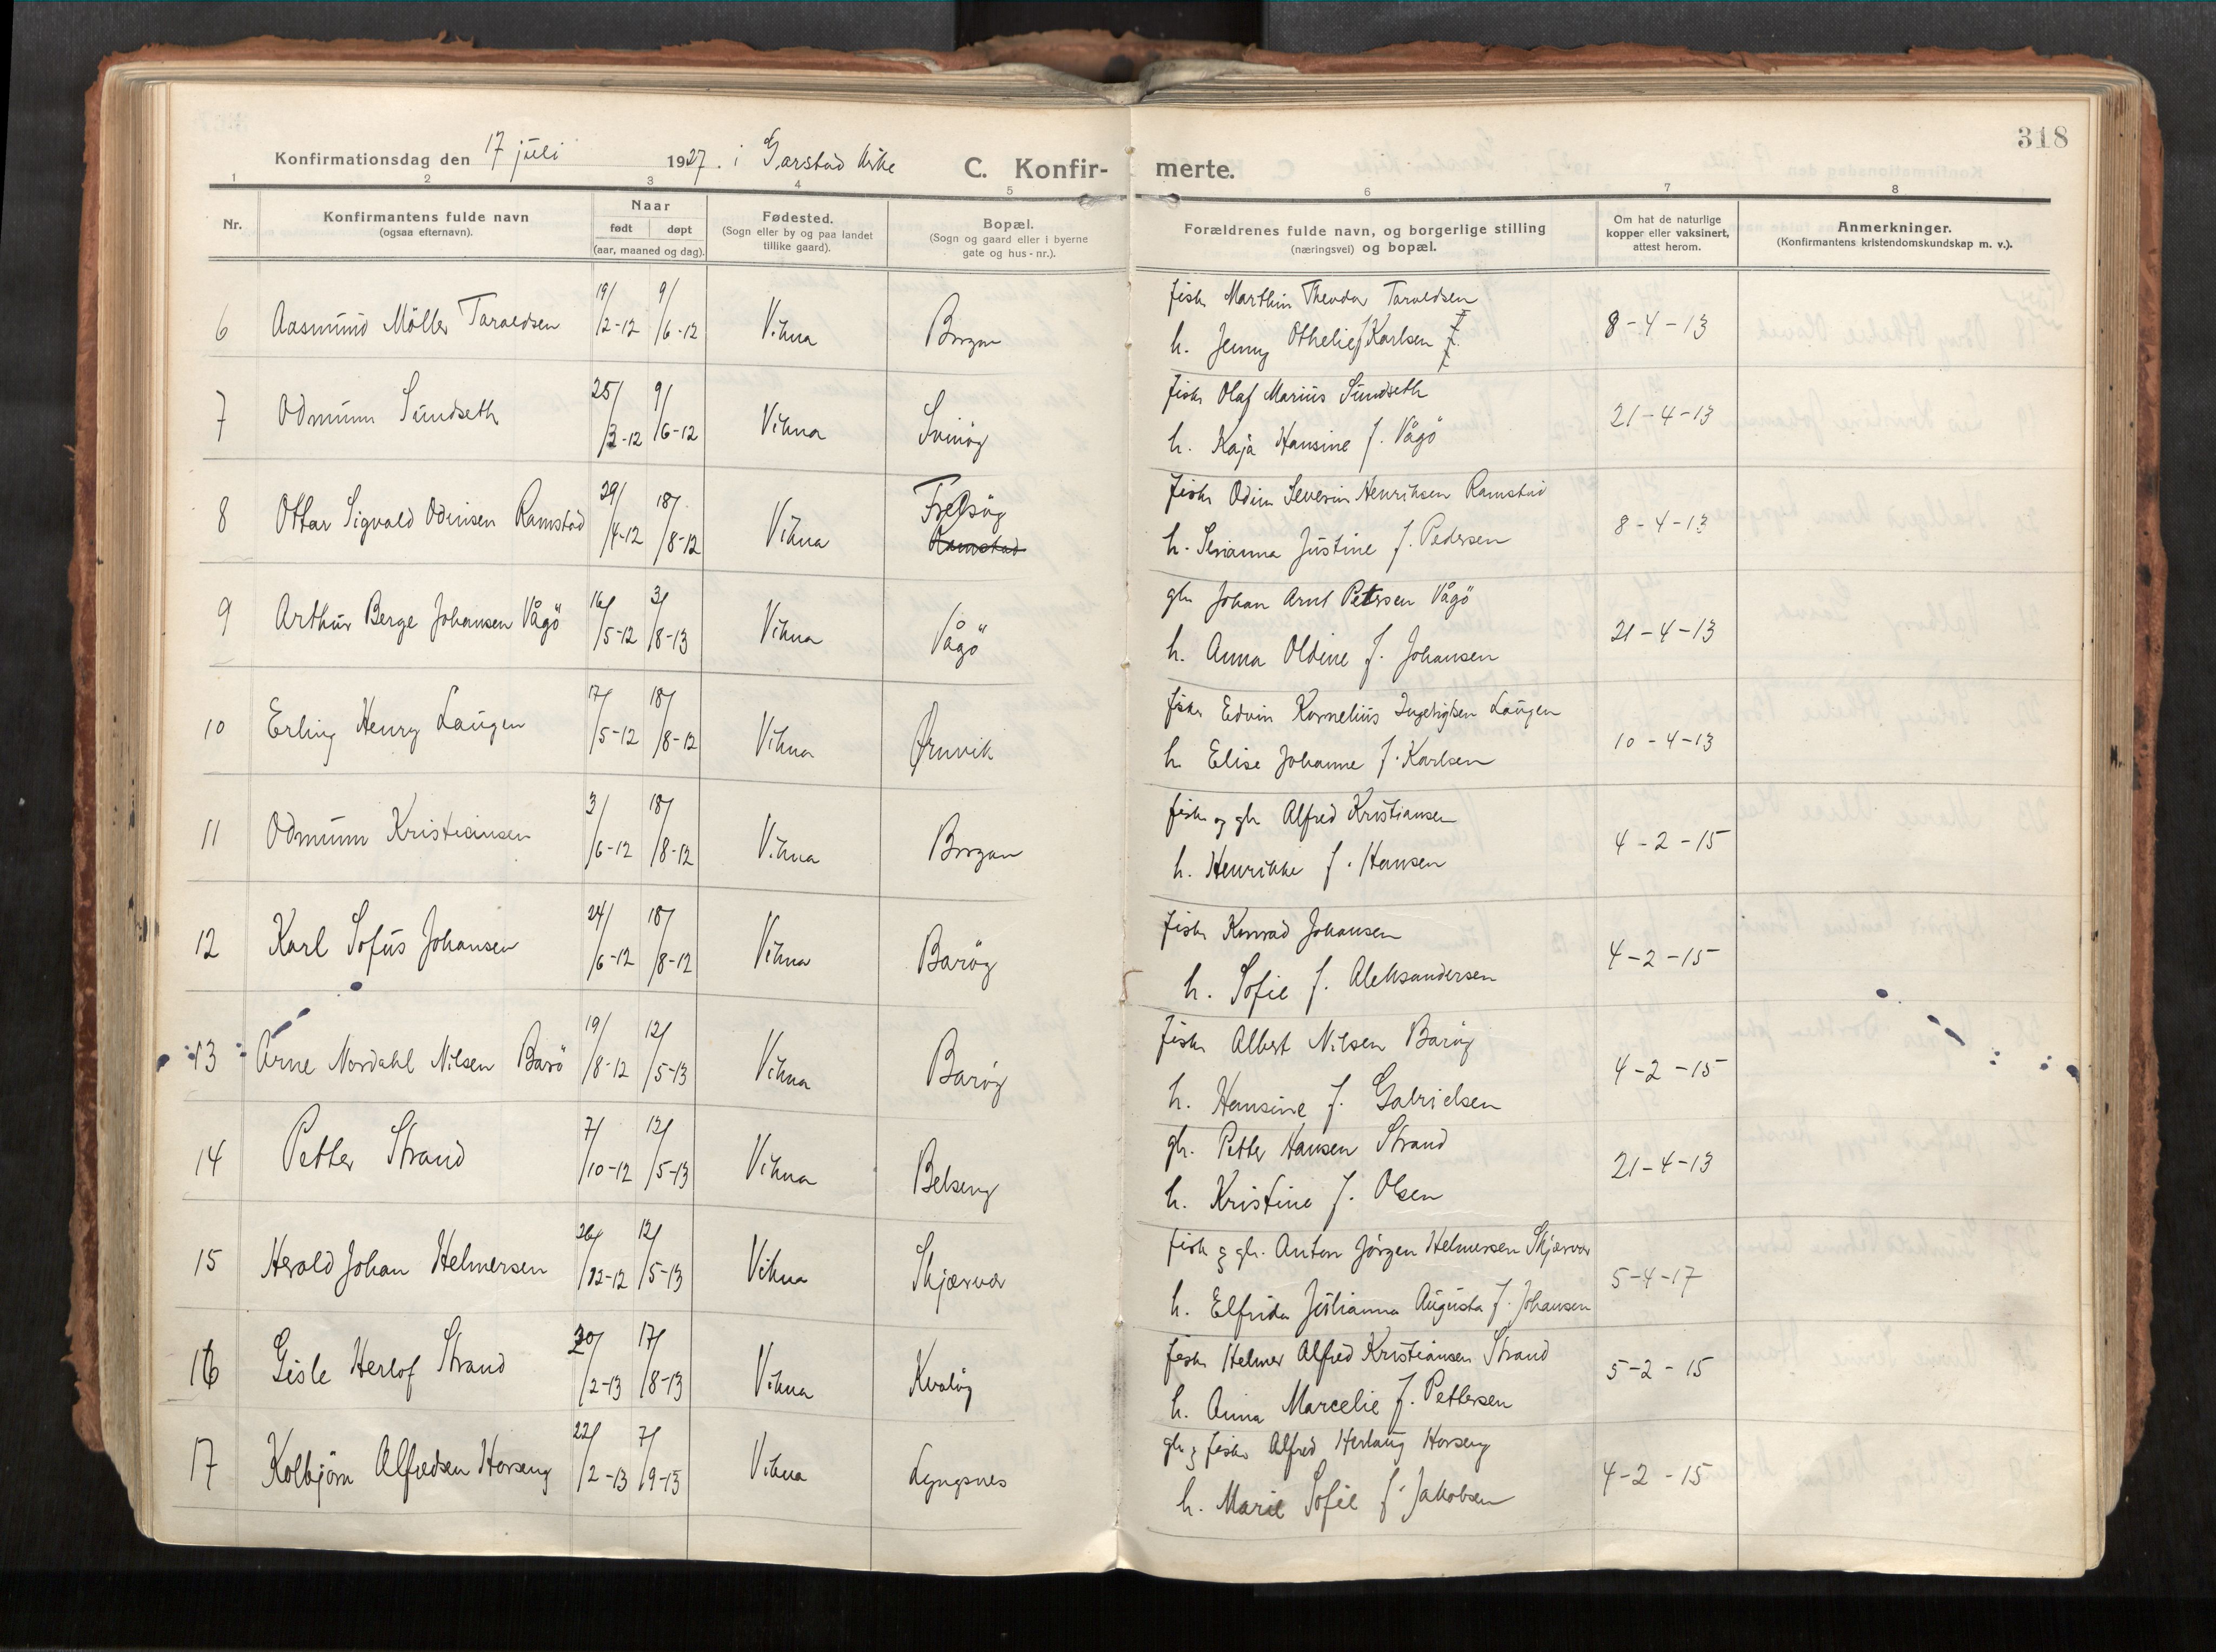 318
Konfirmationsdag den 17 juli 1927. i Garstad kirke C. Konfir- merte.
1 2 3 4 5 6 7 8
Nr. Konfirmantens fulde navn (ogsaa efternavn). Naar født døpt (aar, maaned og dag). Fødested. (Sogn eller by og paa landet tillike gaard). Bopæl. (Sogn og gaard eller i byerne gate og hus-nr.). Forældrenes fulde navn, og borgerlige stilling (næringsvei) og bopæl. Om hat de naturlige kopper eller vaksinert, attest herom. Anmerkninger. (Konfirmantens kristendomskundskap m. v.).
6 Aasmund Möller Taraldsen 19/2-12 9/6-12 Vikna Borgan fisk. Marthin Theodor Taraldsen 8-4-13
h. Jenny Othelie f. Karlsen
7 Odmunn Sundseth 25/3-12 9/6-12 Vikna Svinöy fisk. Olaf Marius Sundseth 21-4-13
h. Kaja Hansine f. Vågö
8 Ottar Sigvald Odinsen Ramstad 29/4-12 18/8-12 Vikna Frelsöy Ramstad fisk. Odin Severin Henriksen Ramstad 8-4-13
h. Serianna Justine f. Pedersen
9 Arthur Berge Johansen Vågö 16/5-12 3/8-13 Vikna Vågö gbr. Johan Arnt Petersen Vågö 21-4-13
h. Anna Oldine f. Johansen
10 Erling Henry Laugen 17/5-12 18/8-12 Vikna Ørnvik fisk. Edvin Kornelius Ingebrigtsen Laugen 10-4-13
h. Elise Johanne f. Karlsen
11 Odmunn Kristiansen 3/6-12 18/8-12 Vikna Borgan fisk og gbr. Alfred Kristiansen 4-2-15
h. Henrikke f. Hansen
12 Karl Sofus Johansen 24/6-12 18/8-12 Vikna Barøy fisk. Konrad Johansen 4-2-15
h. Sofie f. Aleksandersen
13 Arne Nordahl Nilsen Barö 19/8-12 12/5-13 Vikna Barøy fisk. Albert Nilsen Barøy 4-2-15
h. Hansine f. Gabrielsen
14 Petter Strand 7/10-12 12/5-13 Vikna Belseng gbr. Petter Hansen Strand 21-4-13
h. Kristine f. Olsen
15 Herold Johan Helmersen 26/12-12 12/5-13 Vikna Skjærvær fisk og gbr. Anton Jörgen Helmersen Skjærvær 5-4-17
h. Elfrida Julianna Augusta f. Johansen
16 Gisle Herlof Strand 20/2-13 17/8-13 Vikna Kvaløy fisk. Helmer Alfred Kristiansen Strand 5-2-15
h. Anna Marcelie f. Pettersen
17 Kolbjörn Alfredsen Horseng 22/2-13 7/9-13 Vikna Lyngsnes gbr. og fisk. Alfred Herlaug Horseng 4-2-15
h. Marie Sofie f. Jakobsen